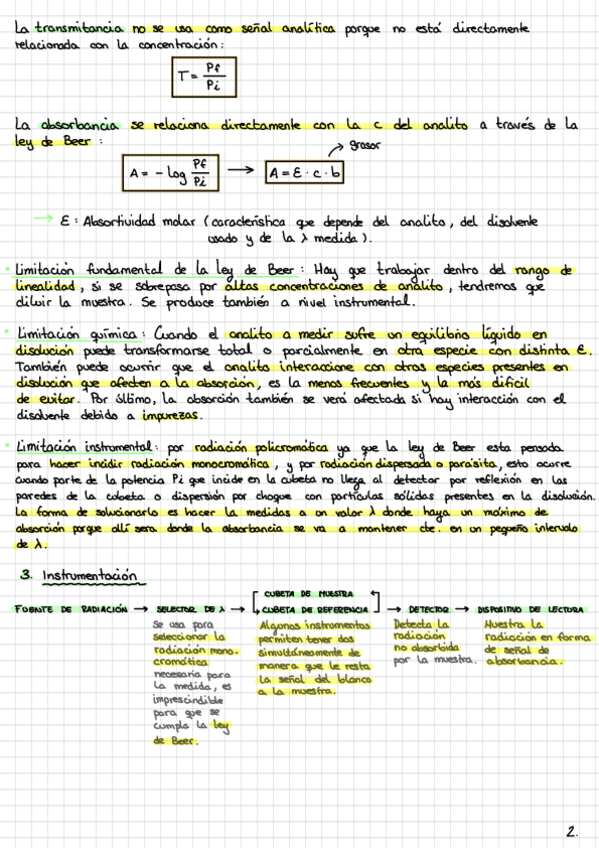 La transmitancia no se usa como señal analítica porque no está directamente
relacionada con la concentración:
T = Pf / Pi
La absorbancia se relaciona directamente con la c del analito a través de la
ley de Beer :
grosor
A = - log Pf / Pi → A = ε · c · b
→ ε : Absortividad molar (característica que depende del analito, del disolvente
usado y de la λ medida).
• Limitación fundamental de la ley de Beer : Hay que trabajar dentro del rango de
linealidad, si se sobrepasa por altas concentraciones de analito, tendremos que
diluir la muestra. Se produce también a nivel instrumental.
• Limitación química : Cuando el analito a medir sufre un equilibrio líquido en
disolución puede transformarse total o parcialmente en otra especie con distinta ε.
También puede ocurrir que el analito interaccione con otras especies presentes en
disolución que afecten a la absorción, es la menos frecuentes y la más difícil
de evitar. Por último, la absorción también se verá afectada si hay interacción con el
disolvente debido a impurezas.
• Limitación instrumental : por radiación policromática ya que la ley de Beer esta pensada
para hacer incidir radiación monocromática, y por radiación dispersada o parásita, esto ocurre
cuando parte de la potencia Pi que incide en la cubeta no llega al detector por reflexión en las
paredes de la cubeta o dispersión por choque con partículas sólidas presentes en la disolución.
La forma de solucionarlo es hacer la medidas a un valor λ donde haya un máximo de
absorción porque allí sera donde la absorbancia se va a mantener cte. en un pequeño intervalo
de λ.
3. Instrumentación
FUENTE DE RADIACIÓN → SELECTOR DE λ → CUBETA DE MUESTRA
CUBETA DE REFERENCIA → DETECTOR → DISPOSITIVO DE LECTURA
Se usa para
seleccionar la
radiación mono-
cromática
necesaria para
la medida, es
imprescindible
para que se
cumpla la ley
de Beer.
Algunos instrumentos
permiten tener dos
simultáneamente de
manera que le resta
la señal del blanco
a la muestra.
Detecta la
radiación
no absorbida
por la muestra.
Muestra la
radiación en forma
de señal de
absorbancia.
2.